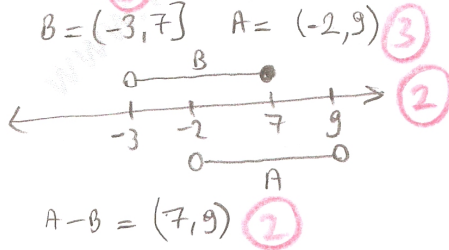 B = (-3,7] A = (-2,9) 3
B
2
-3 -2 7 9
A
A-B = (7,9) 2